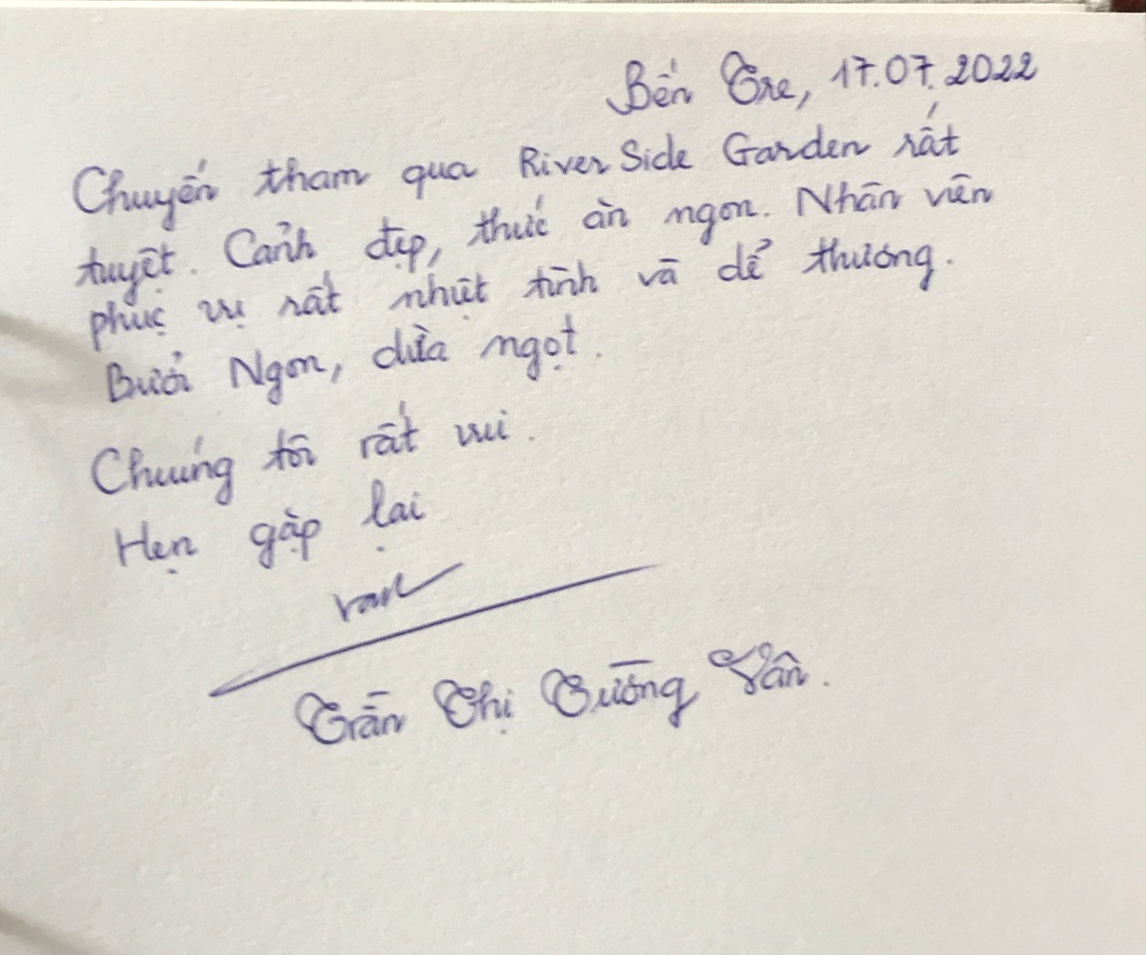 Bến Tre, 17.07.2022
Chuyến tham qua River Side Garden rất
tuyệt. Cảnh đẹp, thức ăn ngon. Nhân viên
phục vụ rất nhiệt tình và dể thương.
Bưởi Ngon, dừa ngọt.
Chúng tôi rất vui.
Hẹn gặp lại
Trần Thị Tường Vân.